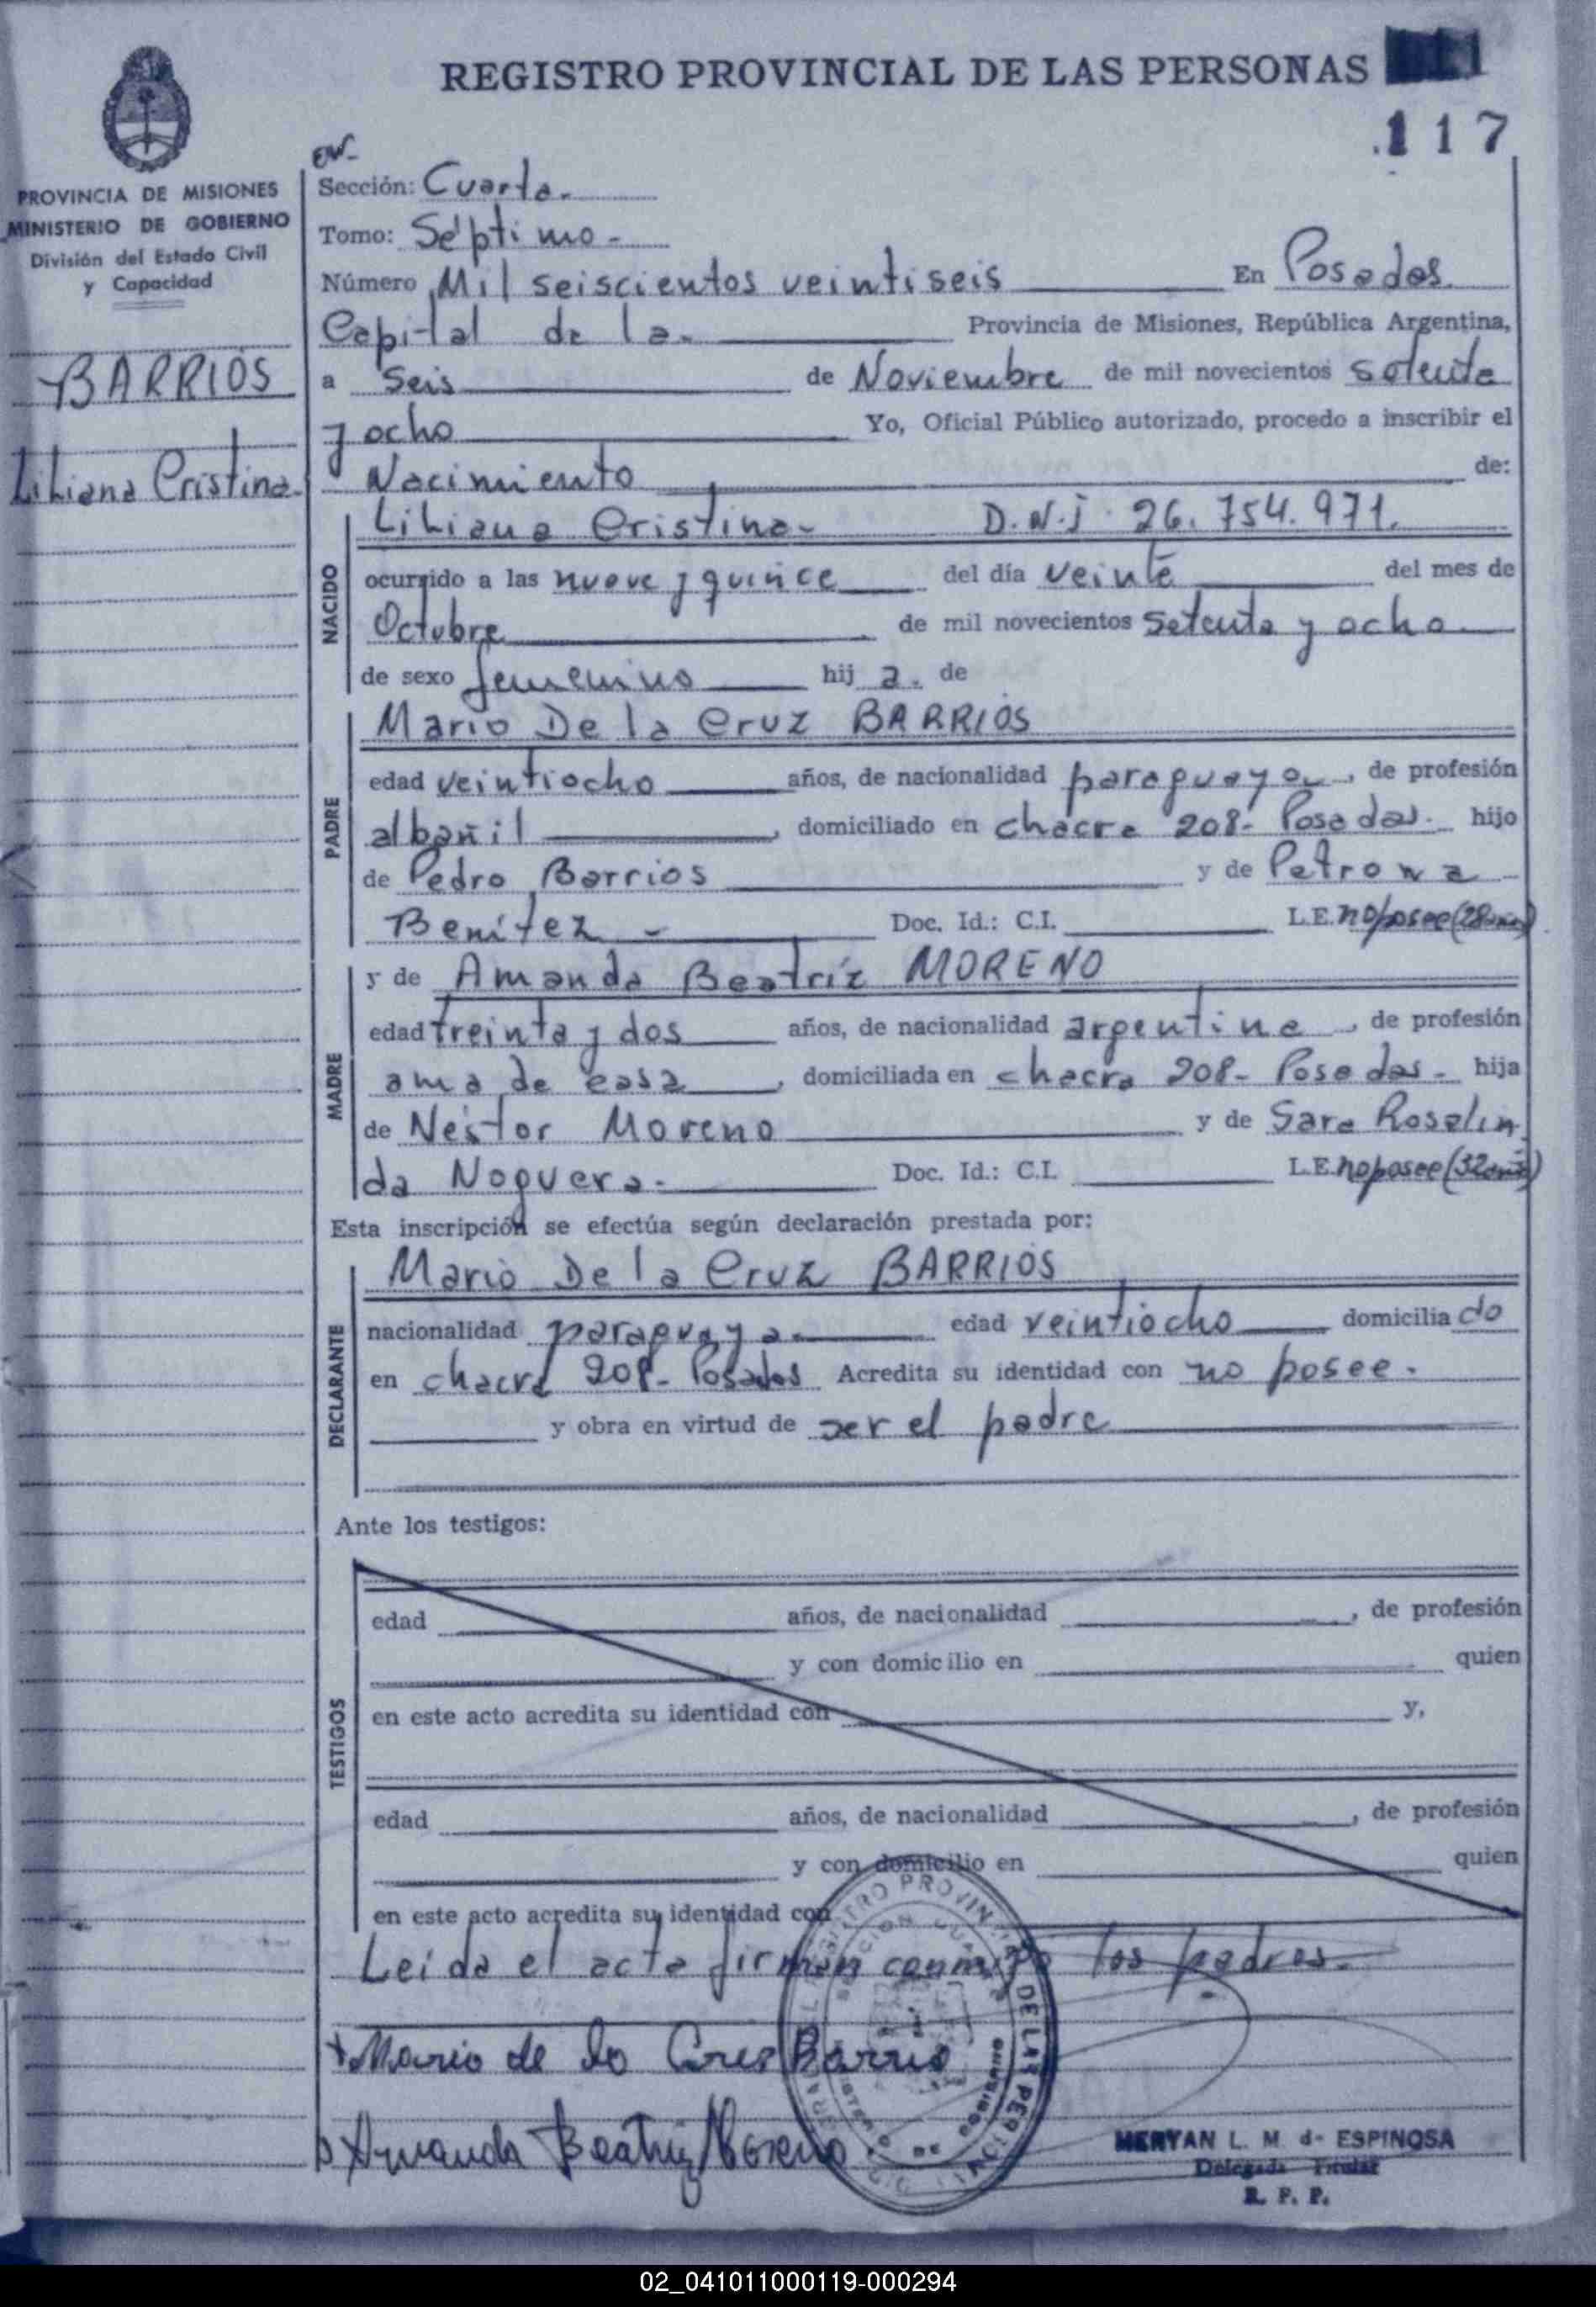 REGISTRO PROVINCIAL DE LAS PERSONAS
117
PROVINCIA DE MISIONES
MINISTERIO DE GOBIERNO
División del Estado Civil
y Capacidad
BARRIOS
Liliana Cristina.
Sección: Cuarta.
Tomo: Séptimo -
Número Mil seiscientos veintiseis En Posadas.
Capital de la. Provincia de Misiones, República Argentina,
a Seis de Noviembre de mil novecientos setenta
y ocho Yo, Oficial Público autorizado, procedo a inscribir el
Nacimiento de:
NACIDO
Liliana Cristina- D.N.I. 26.754.971.
ocurrido a las nueve y quince del día veinte del mes de
Octubre de mil novecientos setenta y ocho
de sexo femenino hij a. de
PADRE
Mario De la Cruz BARRIOS
edad veintiocho años, de nacionalidad paraguaya, de profesión
albañil, domiciliado en chacra 208- Posadas. hijo
de Pedro Barrios y de Petrona
Benítez - Doc. Id.: C.I. L.E. no posee (28 años)
MADRE
y de Amanda Beatríz MORENO
edad treinta y dos años, de nacionalidad argentina, de profesión
ama de casa, domiciliada en chacra 208- Posadas- hija
de Néstor Moreno y de Sara Rosalin
da Noguera. Doc. Id.: C.I. L.E. no posee (32 años)
Esta inscripción se efectúa según declaración prestada por:
DECLARANTE
Mario De la Cruz BARRIOS
nacionalidad paraguaya edad veintiocho domicilia do
en chacra 208- Posadas Acredita su identidad con no posee.
y obra en virtud de ser el padre
Ante los testigos:
TESTIGOS
edad años, de nacionalidad , de profesión
y con domicilio en quien
en este acto acredita su identidad con y,
edad años, de nacionalidad , de profesión
y con domicilio en quien
en este acto acredita su identidad con
Leida el acta firman conmigo los padres.
Mario de la Crus Barrio
Amanda Beatriz Moreno
MERYAN L. M. de ESPINOSA
Delegada Titular
R. P. P.
02_041011000119-000294